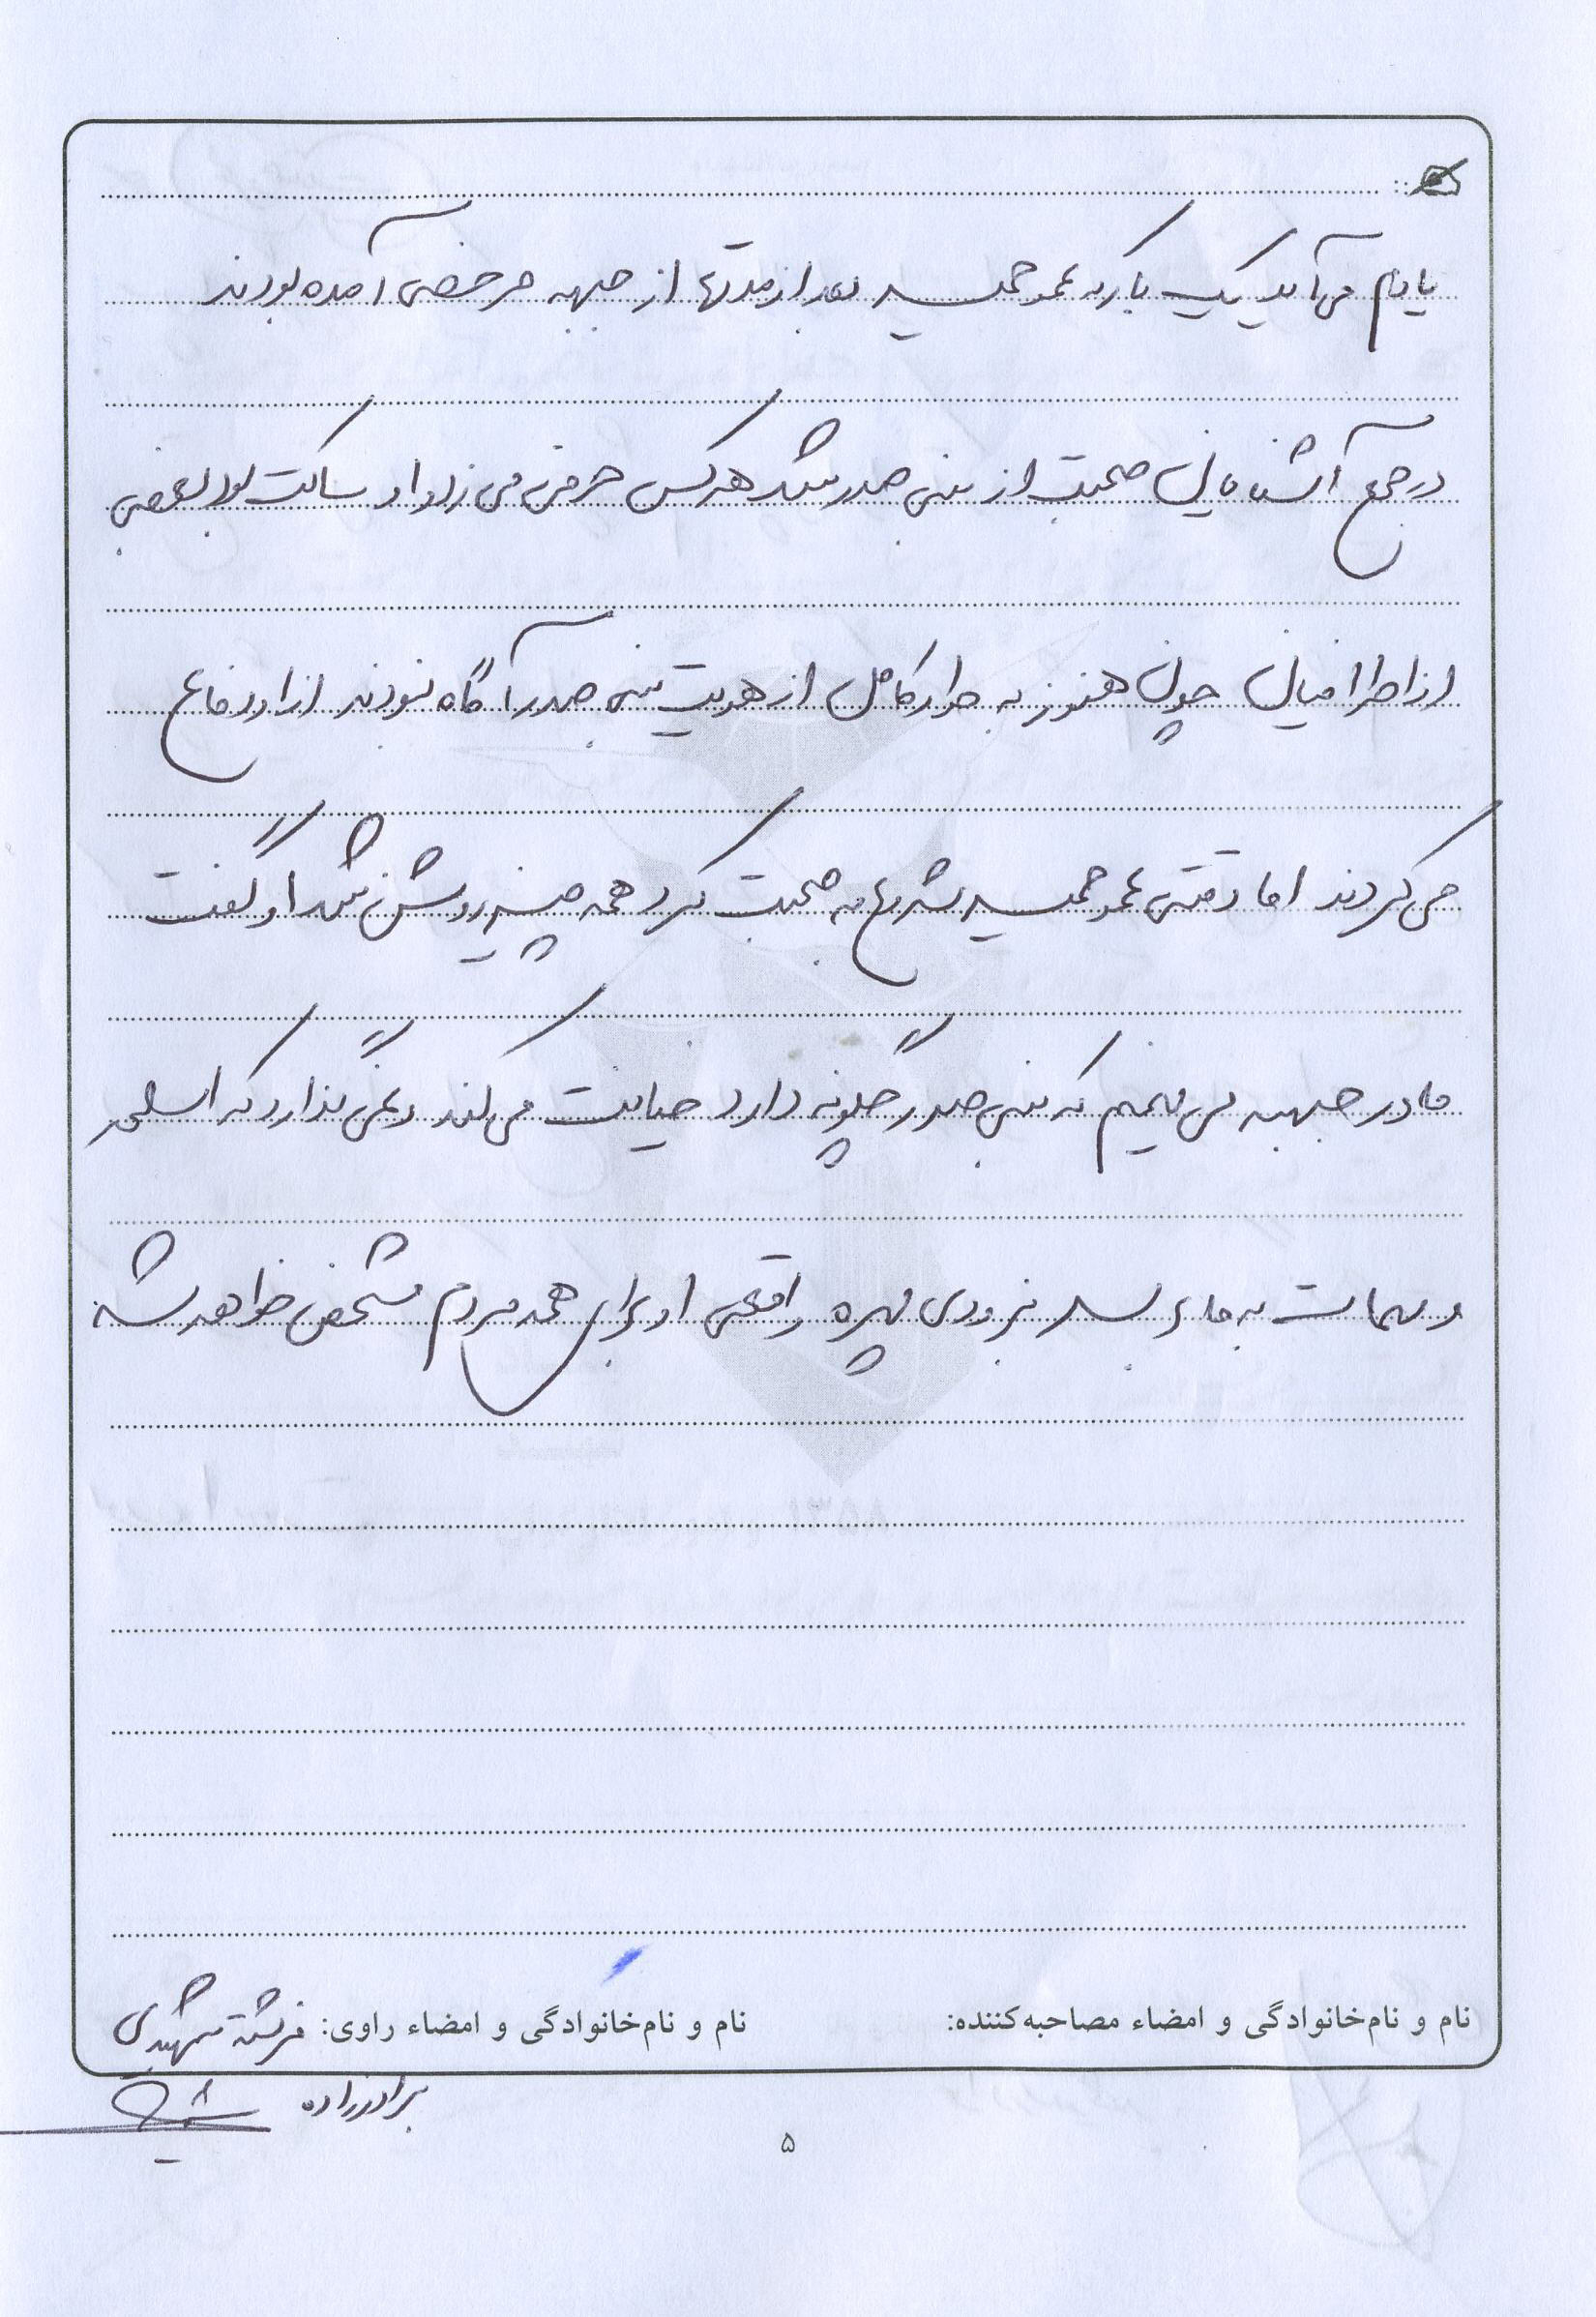 یادم می‌آید یک بار که عمو حمید بعد از مدتها از جبهه مرخصی آمده بودند
در جمع آشنایان صحبت از بنی صدر شد هر کس حرفی می زد او ساکت بود بعضی
از اطرافیان چون هنوز به طور کامل از هویت بنی صدر آگاه نبودند از او دفاع
می کردند اما وقتی عمو حمید شروع به صحبت کرد همه چیز روشن شد او گفت
ما در جبهه می بینیم که بنی صدر چگونه دارد خیانت می کند و نمی گذارد که اسلحه
و مهمات به ما برسد بزودی چهره واقعی او برای همه مردم مشخص خواهد شد
نام و نام‌خانوادگی و امضاء مصاحبه‌کننده:
نام و نام‌خانوادگی و امضاء راوی: فرشته شهیدی
برادرزاده
۵